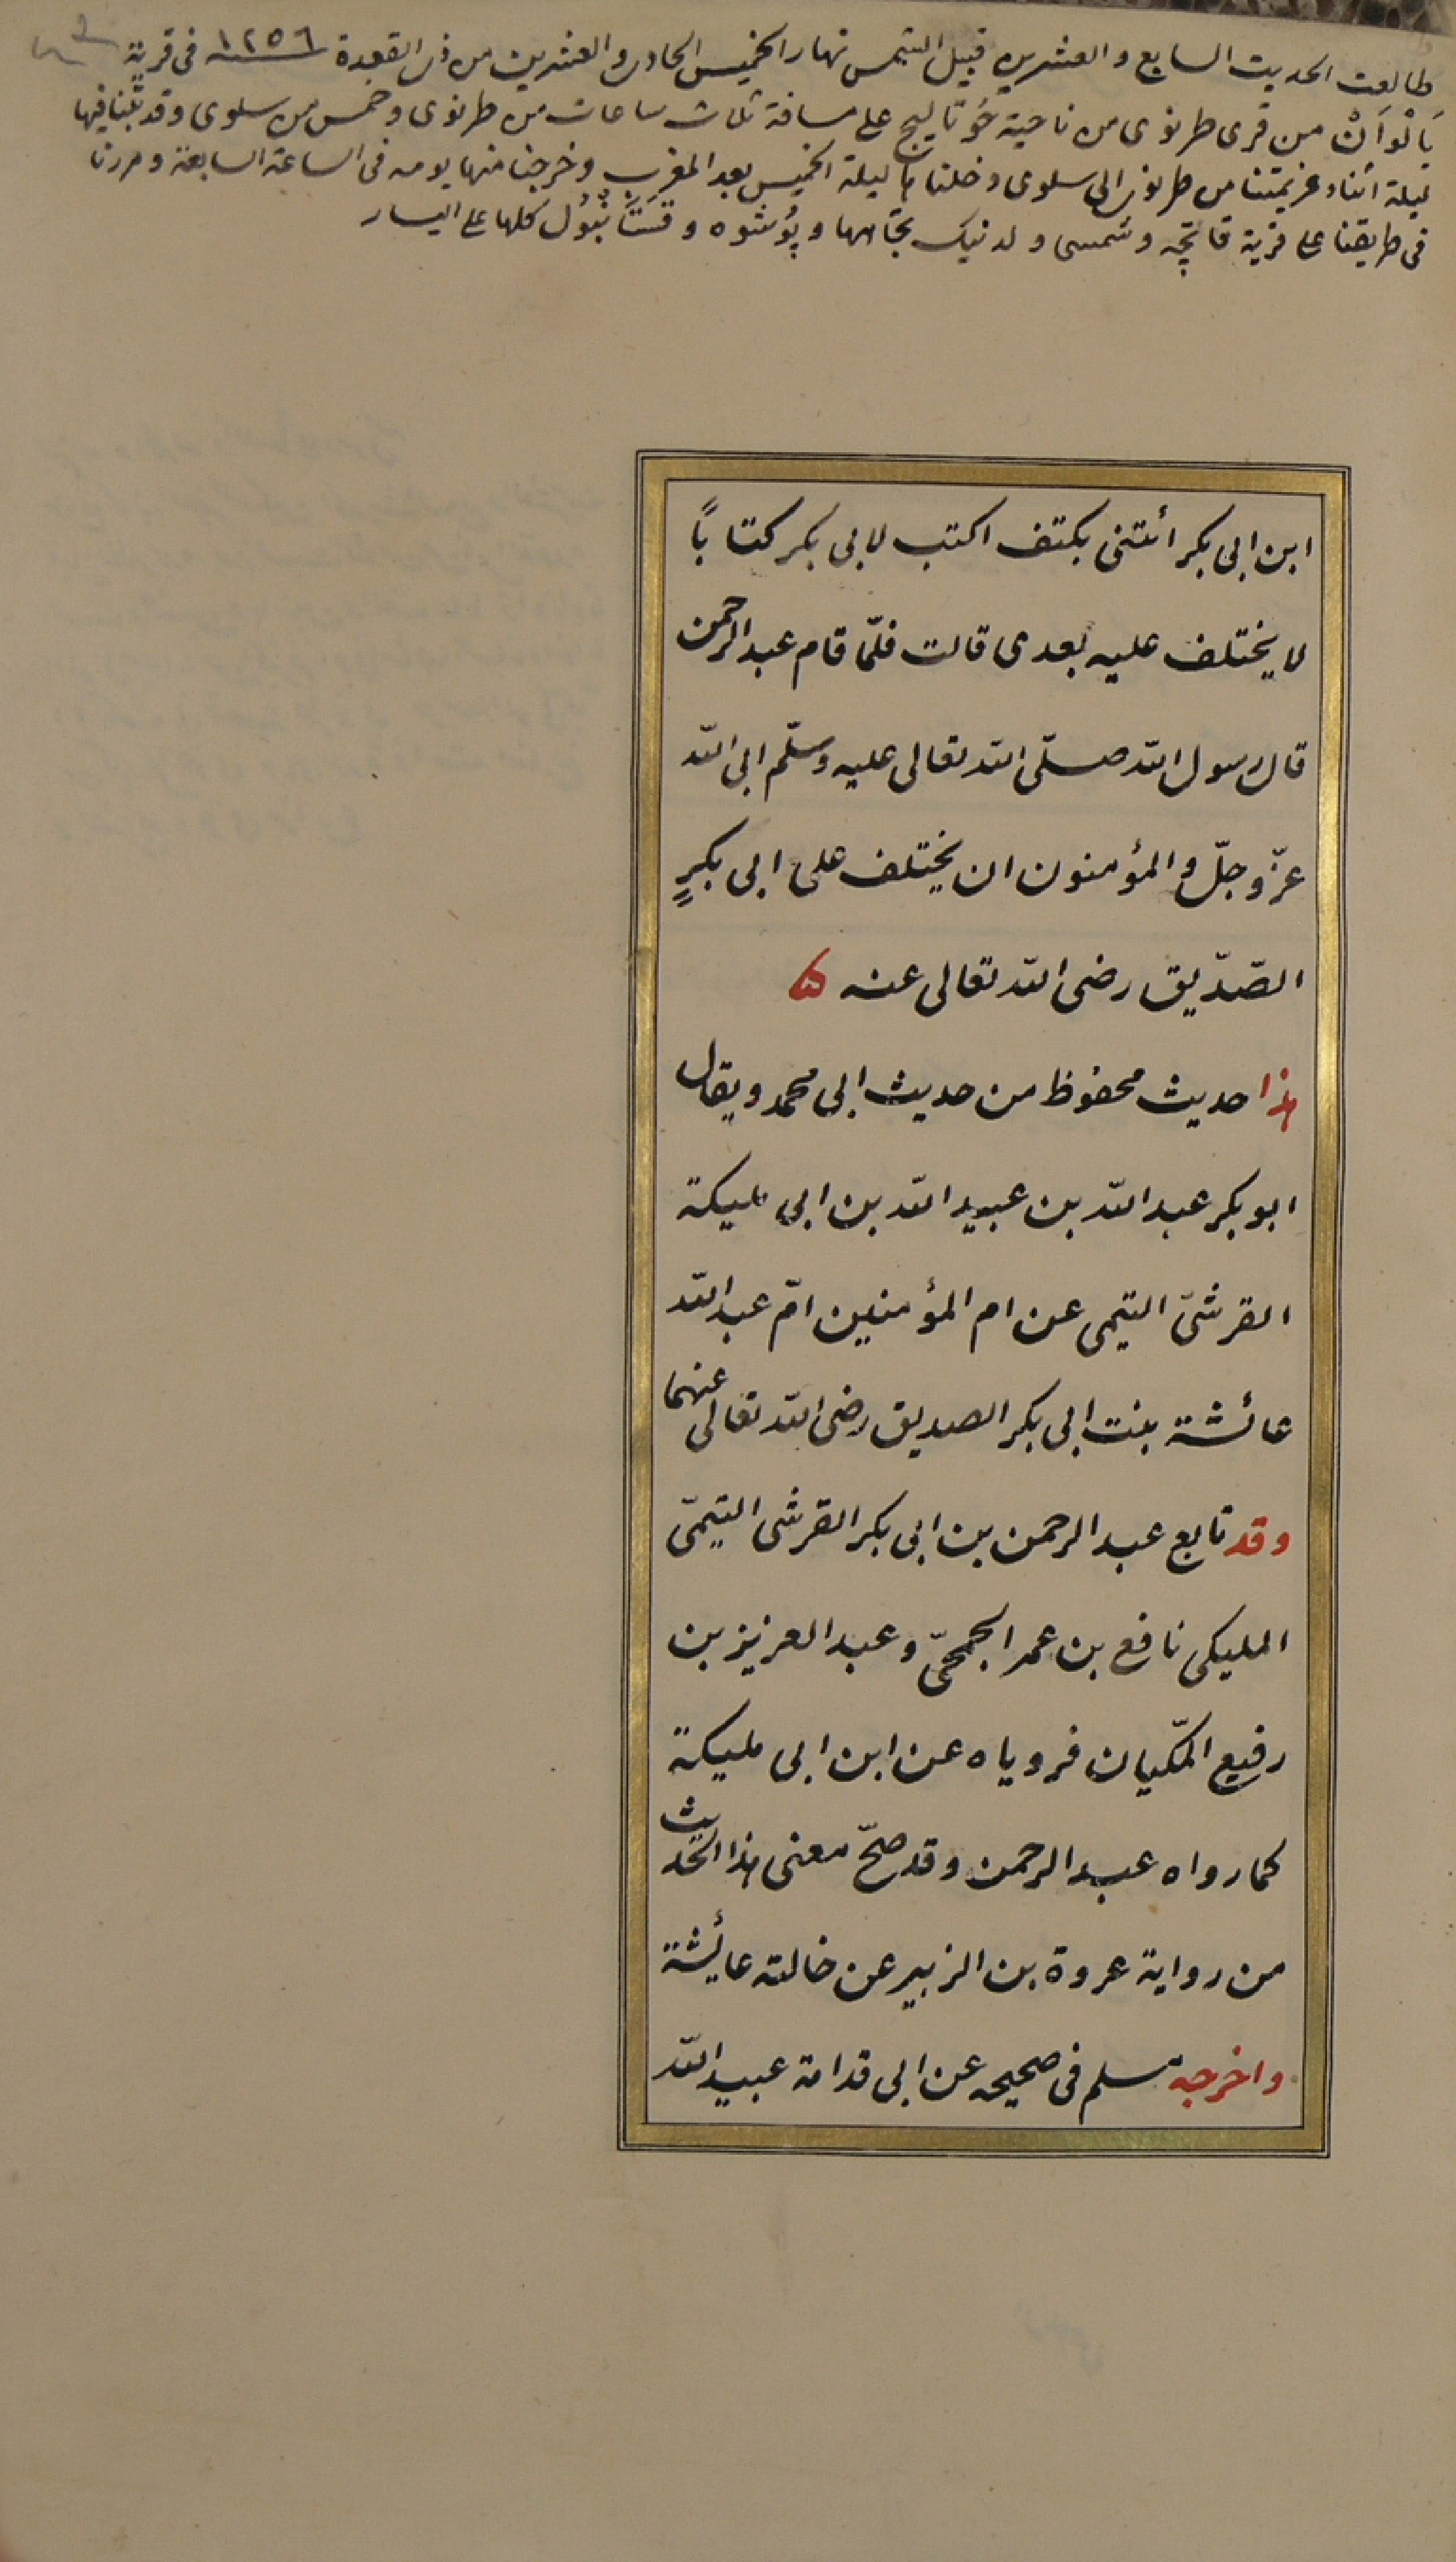 طالعت الحديث السابع والعشرين قبيل الشمس نهار الخميس الحادى والعشرين من ذى القعدة سنة ١٢٥٦ فى قرية
يَانْوَانْ من قرى طرنوى من ناحية خُوتاليچ على مسافة ثلاث ساعات من طرنوى وخمس من سلوى وقد بتنا فيها
ليلة اثناء عزيمتنا من طرنوى الى سلوى دخلنا ليلة الخميس بعد المغرب وخرجنا منها يومه فى الساعة السابعة ومررنا
فى طريقنا على قرية وشمسى تجاهها كلها على اليسار
ابن ابى بكر ائتنى بكتف اكتب لابى بكر كتابًا
لا يختلف عليه بعدى قالت فلمّا قام عبد الرحمن
قال رسول الله صلّى الله تعالى عليه وسلّم ابى الله
عزّ وجلّ والمؤمنون ان يختلف على ابى بكرٍ
الصّدّيق رضى الله تعالى عنه
هذا حديث محفوظ من حديث ابى محمد ويقال
ابو بكر عبد الله بن عبيد الله بن ابى مليكة
القرشىّ التيمى عن ام المؤمنين امّ عبد الله
عائشة بنت ابى بكر الصديق رضى الله تعالى عنهما
وقد تابع عبد الرحمن بن ابى بكر القرشى التيمىّ
المليكى نافع بن عمر الجمحىّ وعبد العزيز بن
رفيع المكّيان فروياه عن ابن ابى مليكة
كما رواه عبد الرحمن وقد صحّ معنى هذا الحديث
من رواية عروة بن الزبير عن خالته عائشة
واخرجه مسلم فى صحيحه عن ابى قدامة عبيد الله